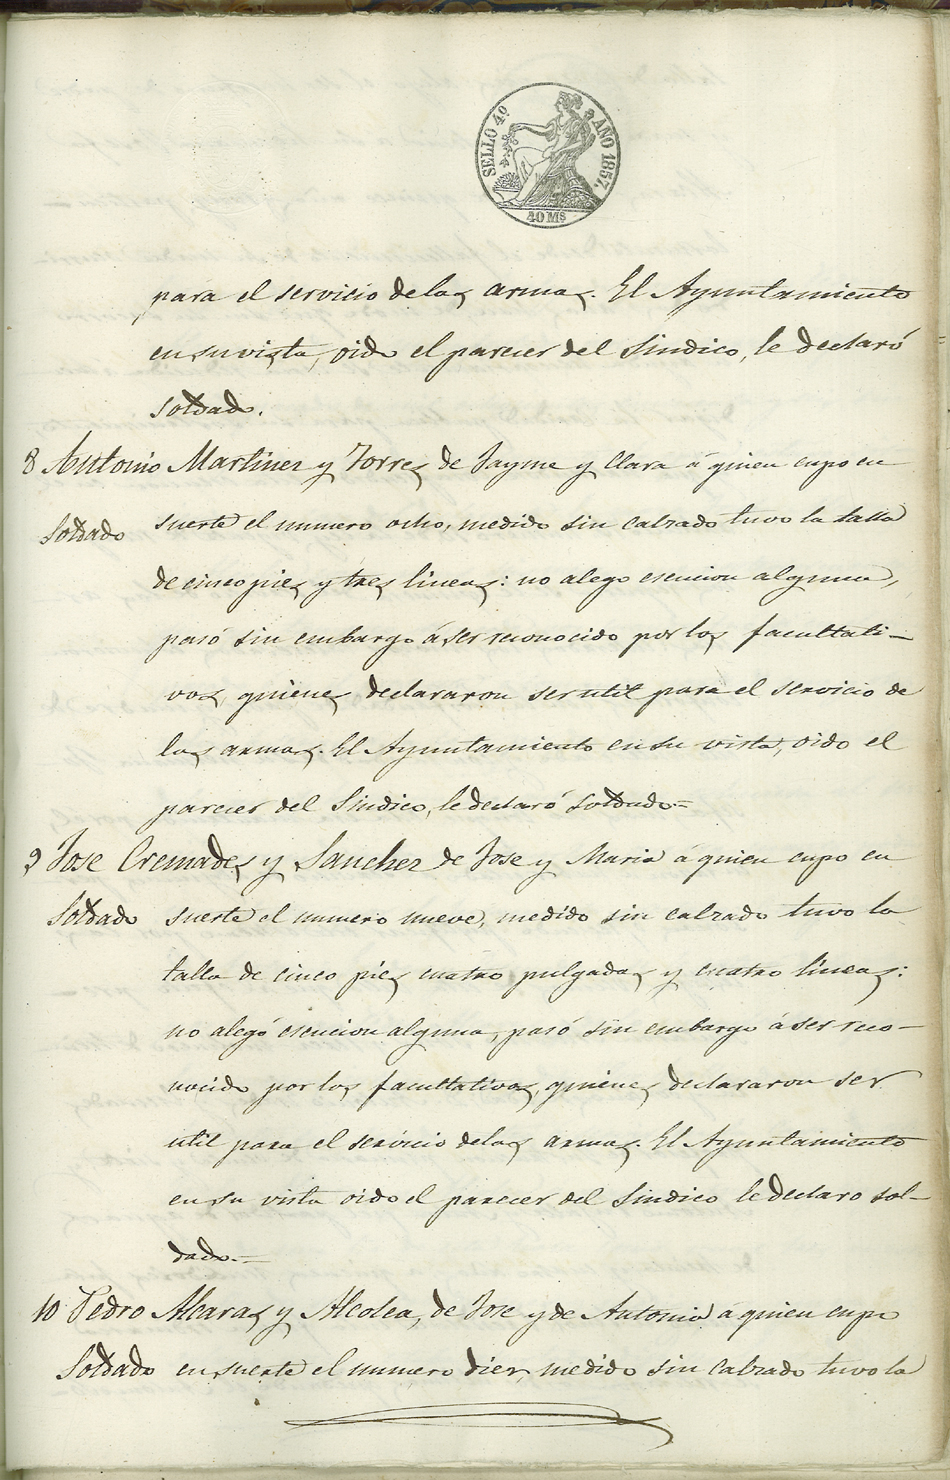 SELLO 4º AÑO 1857.
40 Mˢ
para el servicio de las armas. El Ayuntamiento
en su vista, oido el parecer del Sindico, le declaró
soldado.
8 Antonio Martinez y Torres de Jayme y Clara á quien cupo en
Soldado suerte el numero ocho, medido sin calzado tuvo la talla
de cinco pies y tres lineas: no alego esencion alguna,
pasó sin embargo á ser reconocido por los facultati-
vos, quienes declararon ser util para el servicio de
las armas. El Ayuntamiento en su vista, oido el
parecer del Sindico, le declaró soldado=
9 Jose Cremades y Sanchez de Jose y Maria á quien cupo en
Soldado suerte el numero nueve, medido sin calzado tuvo la
talla de cinco pies cuatro pulgadas y cuatro lineas:
no alegó esencion alguna, pasó sin embargo á ser reco-
nocido por los facultativos, quienes declararon ser
util para el servicio de las armas. El Ayuntamiento
en su vista oido el parecer del Sindico le declaro sol-
dado.=
10 Pedro Alcaras y Alcolea, de Jose y de Antonia á quien cupo
Soldado en suerte el numero diez, medido sin calzado tuvo la